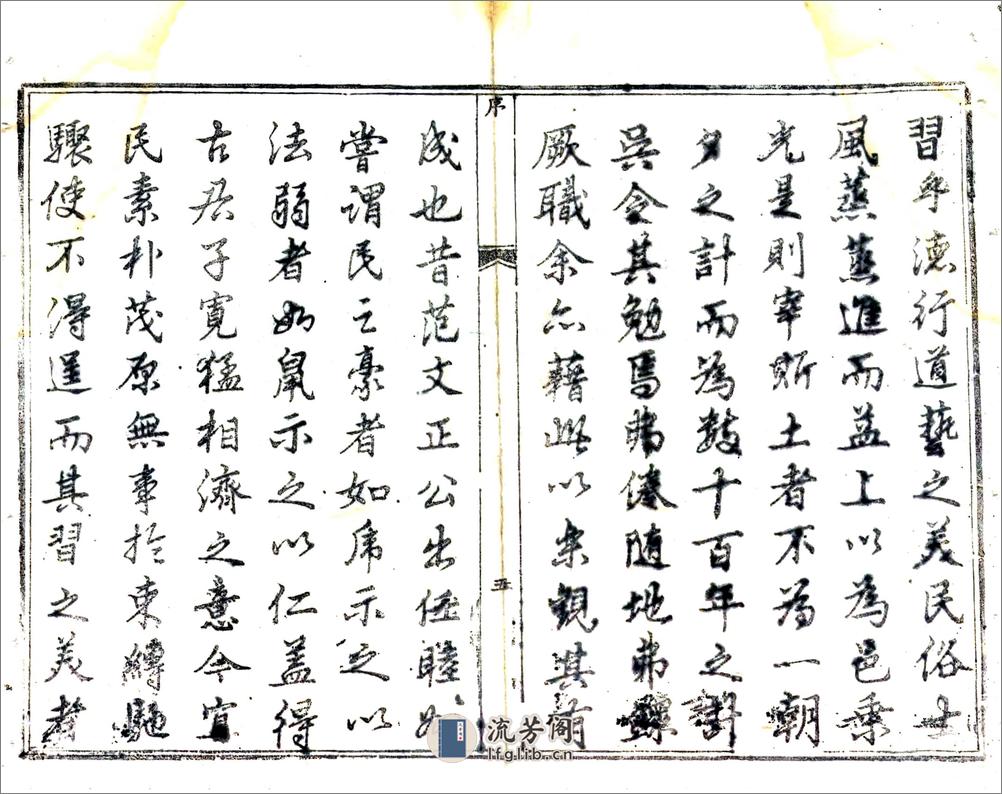 習乎德行道藝之美民俗士
風蒸蒸進而益上以為邑乘
光是則宰斯土者不為一朝
夕之計而為數十百年之計
吳令其勉焉弗倦隨地弗
厥職余亦藉此以樂觀其
序
五
成也昔范文正公出任睦
嘗謂民之豪者如虎示之以
法弱者如鼠示之以仁蓋得
古君子寬猛相濟之意今宜
民素朴茂原無事於束縛馳
驟使不得逞而其習之美者
流芳阁
lfglib.cn